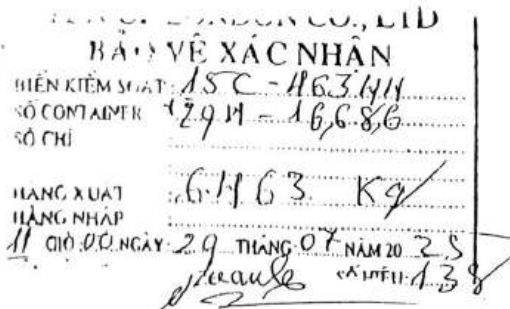 CO., LTD
BẢO VỆ XÁC NHẬN
BIỂN KIỂM SOÁT: 15C - 463.44
SỐ CONTAINER 29H - 16,686
SỐ CHÌ
HÀNG XUẤT 6463 Kg
HÀNG NHẬP
11 GIỜ 00 NGÀY 29 THÁNG 07 NĂM 20 25
SỐ HIỆU: 138